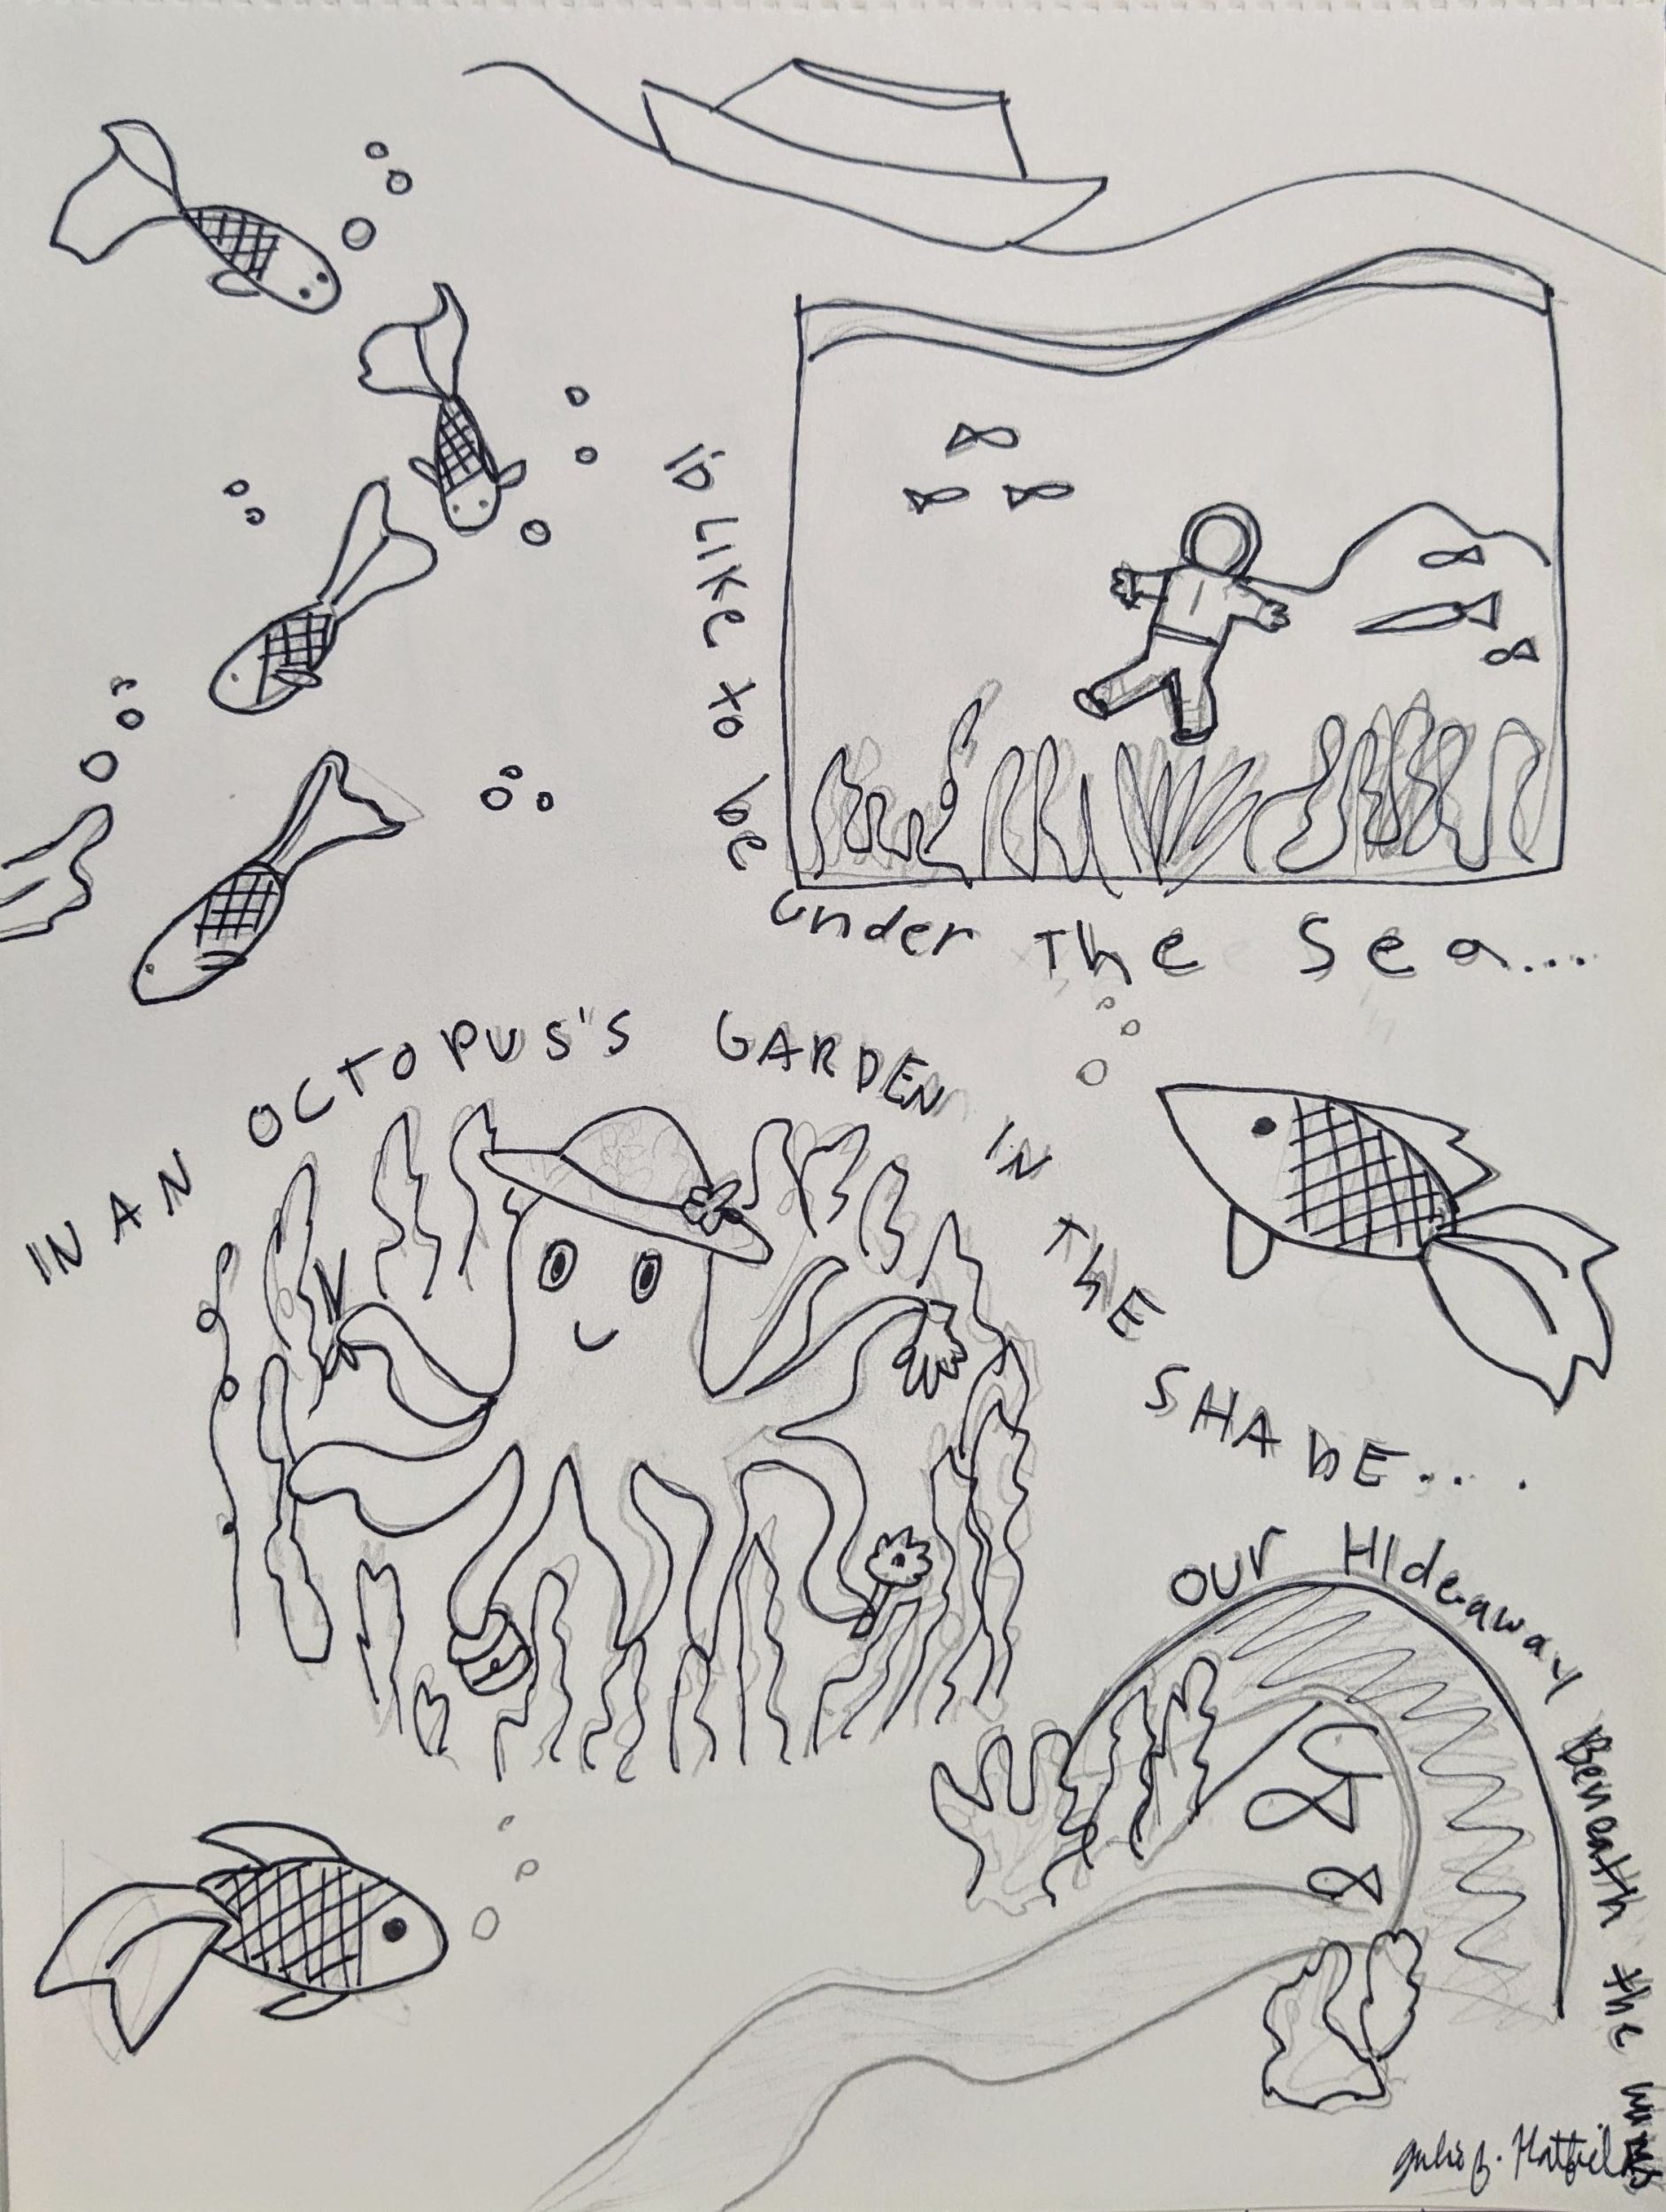 I'D LIKe to be
under The Sea...
IN AN OCTOPUS'S GARDEN IN THE SHADE....
OUr HIdeaway Beneath the waves
Julie B. Hatfield